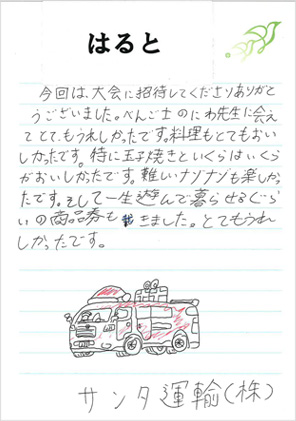 はると
今回は、大会に招待してくださりありがと
うございました。べんごしのにわ先生に会え
てとてもうれしかったです。料理もとてもおい
しかったです。特に玉子焼きといくらはいくら
がおいしかったです。難しいナゾナゾも楽しかっ
たです。そして一生遊んで暮らせるぐら
いの商品券も きました。とてもうれ
しかったです。
サンタ運輸(株)